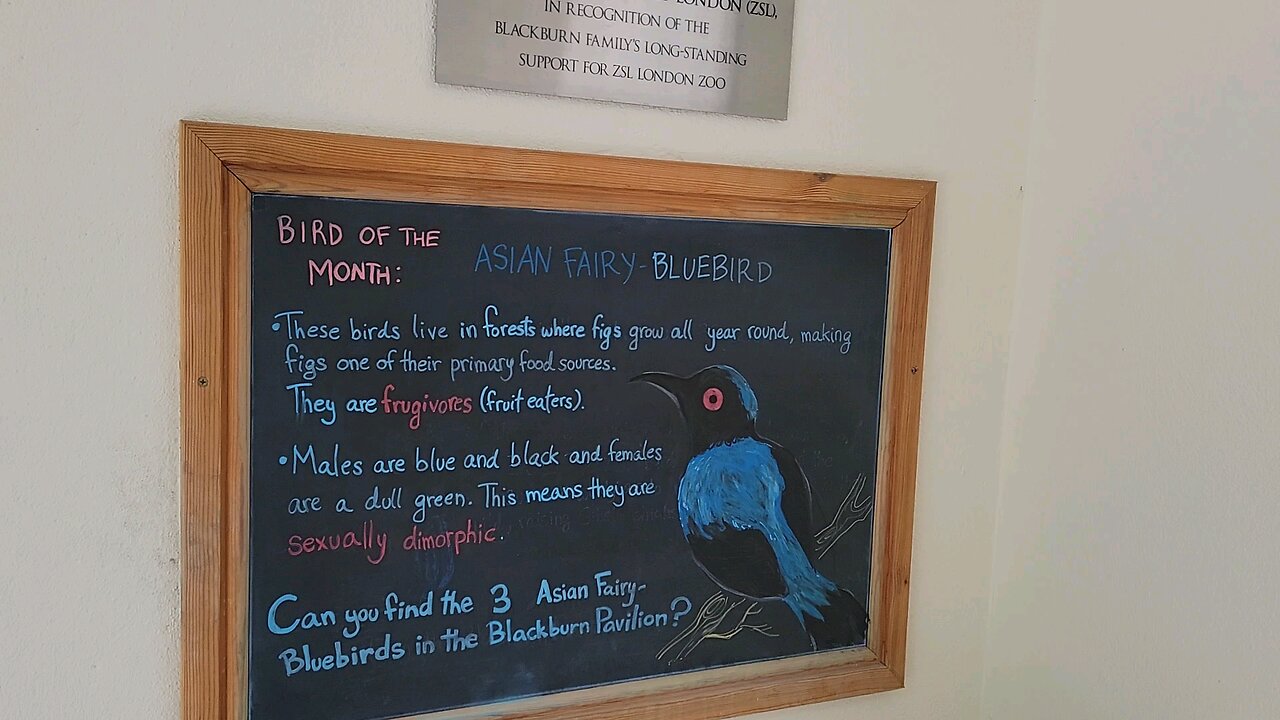 LONDON (ZSL),
IN RECOGNITION OF THE
BLACKBURN FAMILY'S LONG-STANDING
SUPPORT FOR ZSL LONDON ZOO
BIRD OF THE
MONTH:
ASIAN FAIRY-BLUEBIRD
•These birds live in forests where figs grow all year round, making
figs one of their primary food sources.
They are frugivores (fruit eaters).
•Males are blue and black and females
are a dull green. This means they are
sexually dimorphic.
Can you find the 3 Asian Fairy-
Bluebirds in the Blackburn Pavilion?